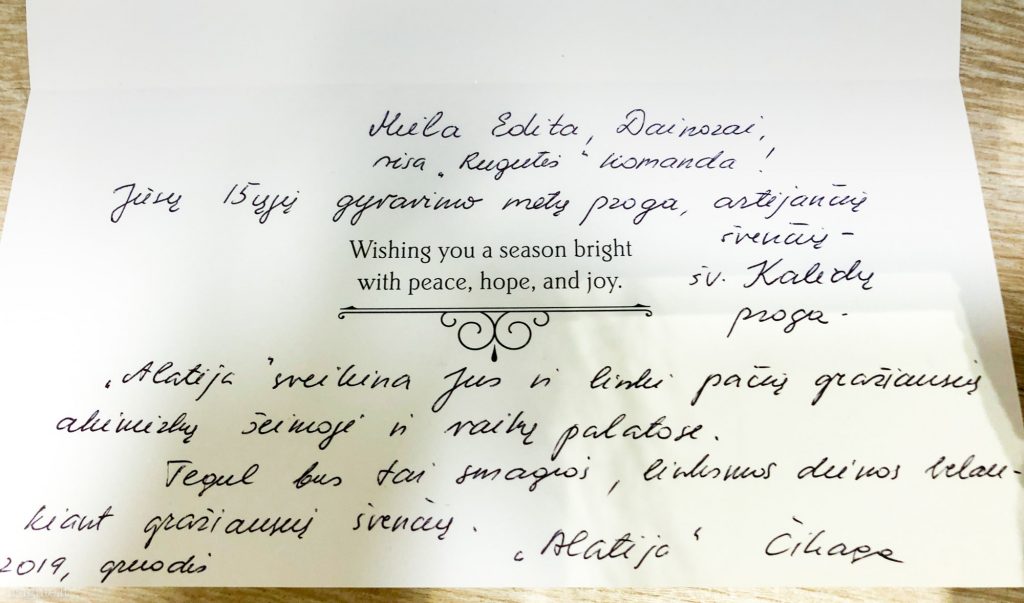 Miela Edita, Dainorai,
visa „Rugutės“ komanda!
Jūsų 15ųjų gyvavimo metų proga, artėjančių
švenčių –
šv. Kalėdų
proga –
Wishing you a season bright
with peace, hope, and joy.
„Alatėja“ sveikina Jus ir linki pačių gražiausių
akimirkų šeimoje ir vaikų palatose.
Tegul bus tai smagios, linksmos dienos belau-
kiant gražiausių švenčių.
„Alatėja“ Čikaga
2019, gruodis